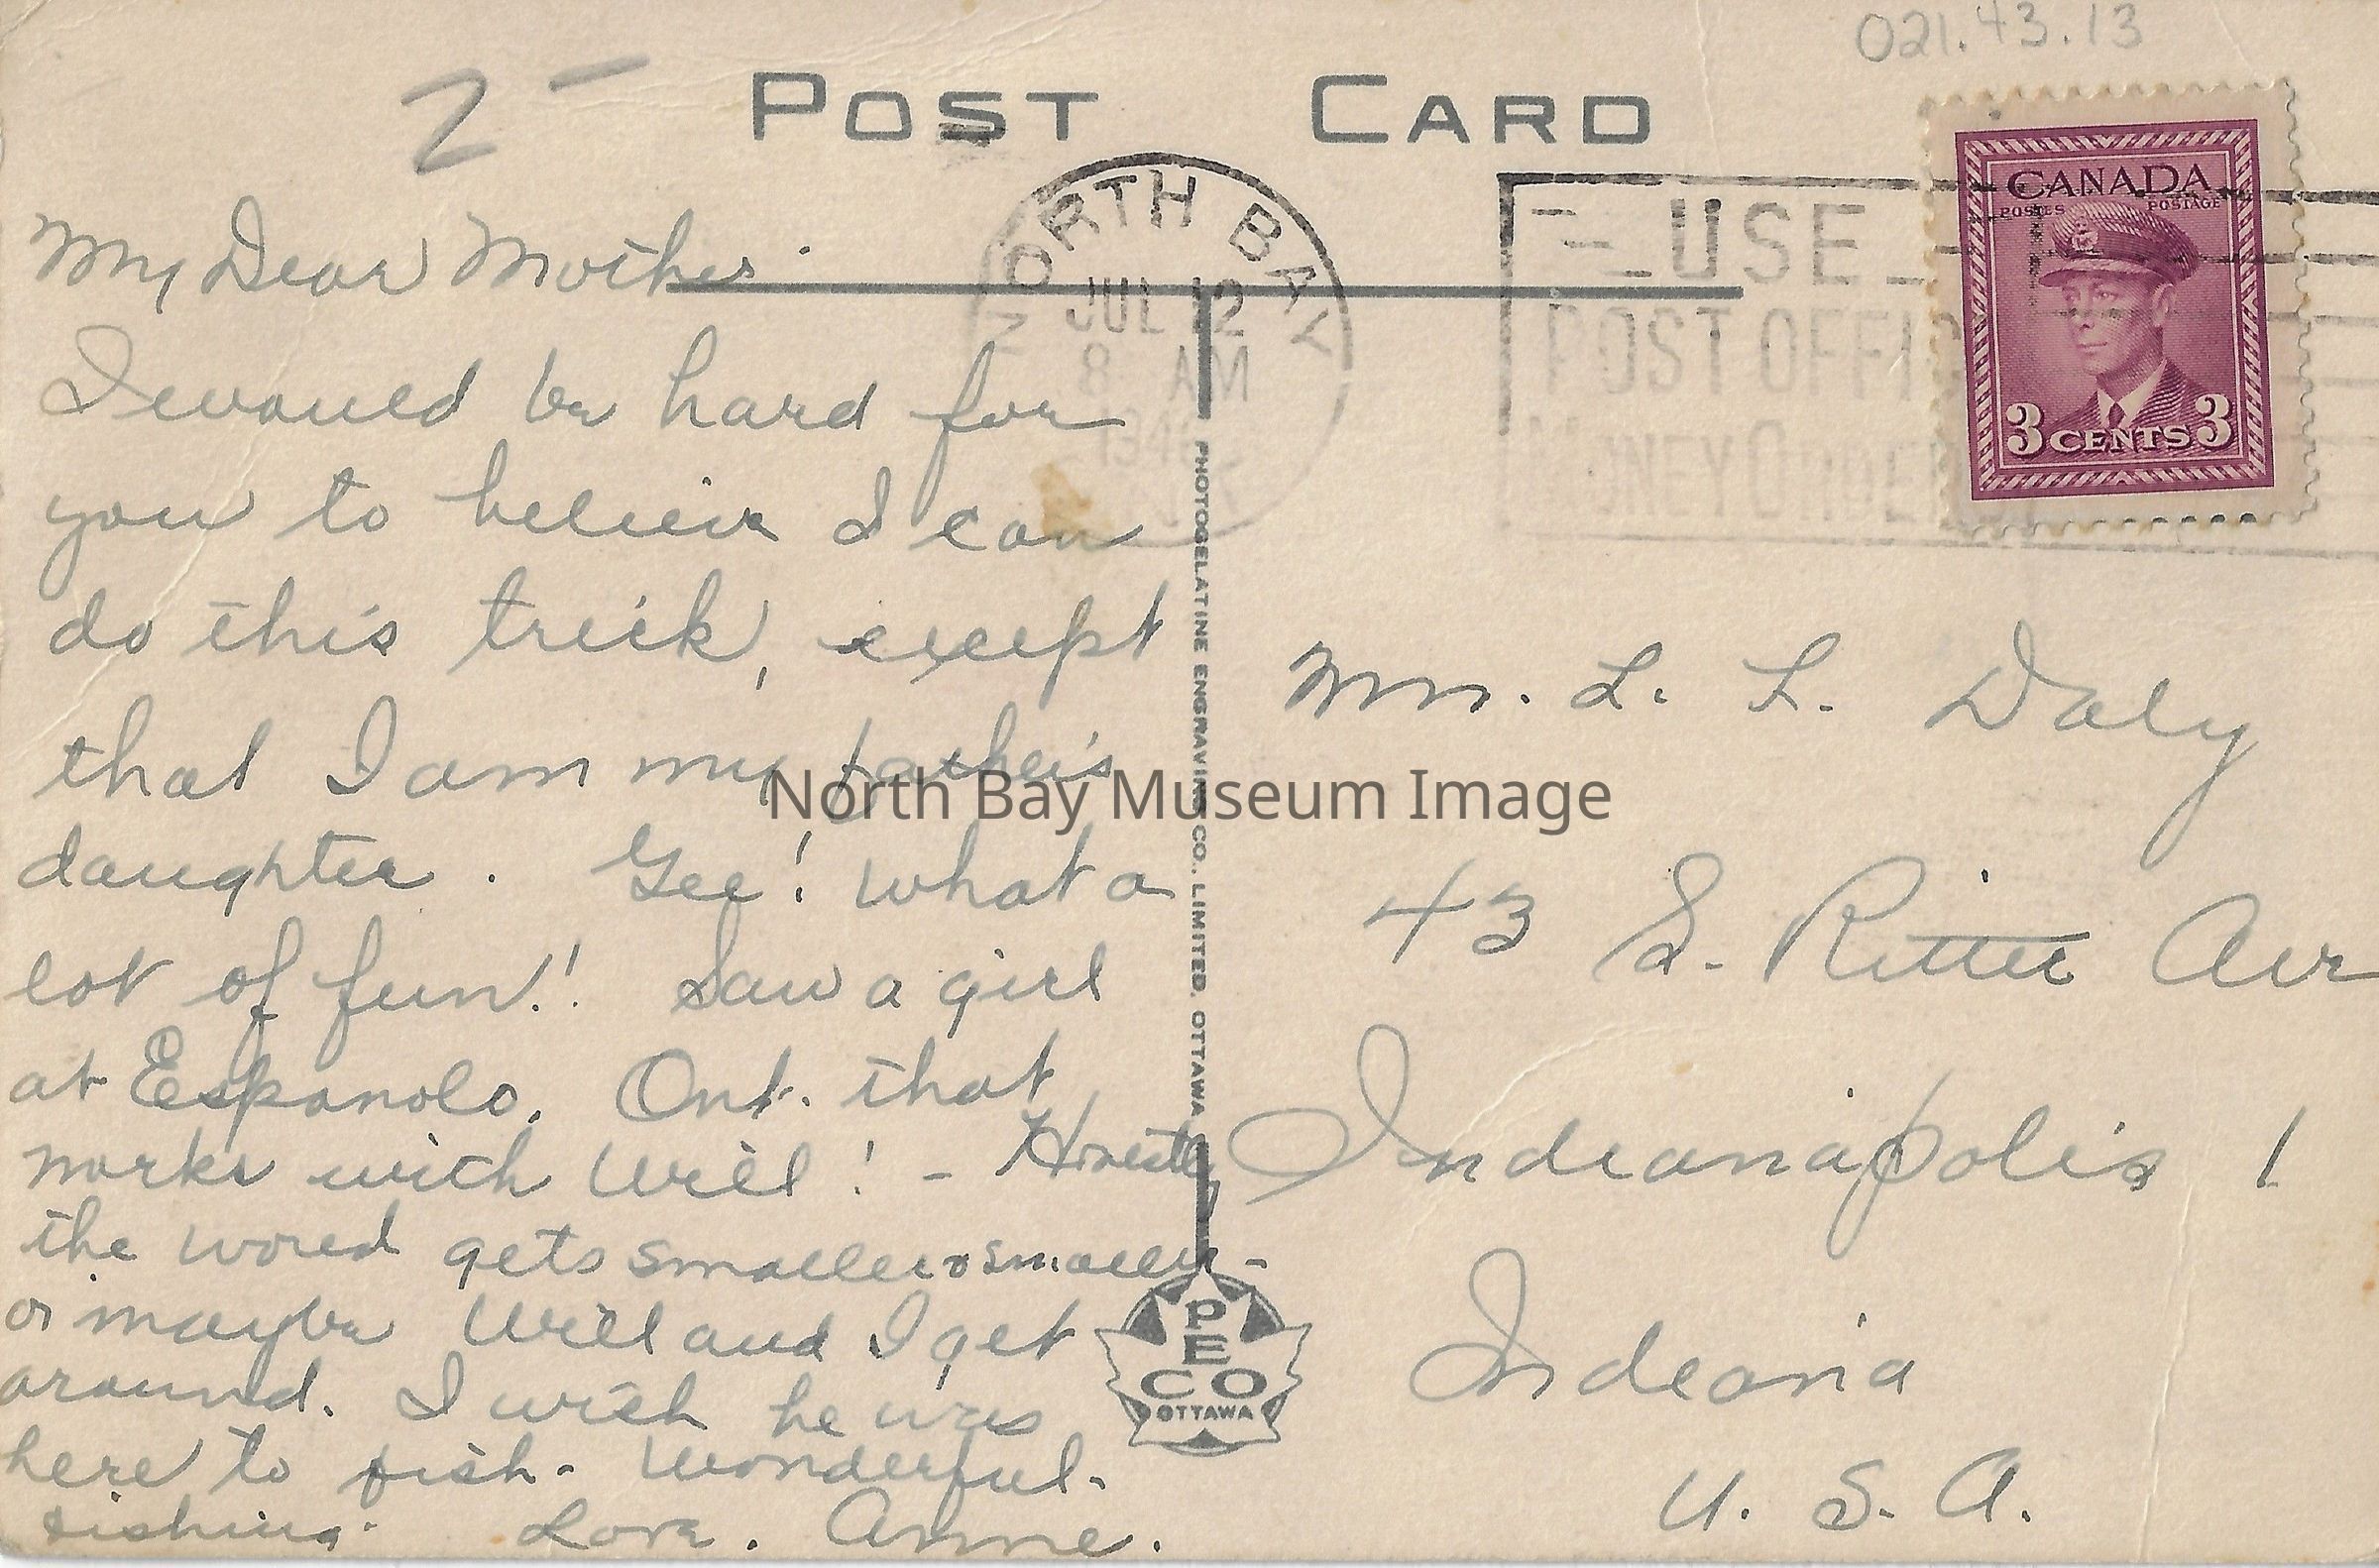 021.43.13
2 —
POST CARD
NORTH BAY
JUL 12
8 AM
194
USE
POST OFFIC
MONEY ORDE
CANADA
POSTES POSTAGE
3 CENTS 3
My Dear Mother.
I would be hard for
you to believe I can
do this trick, except
that I am my father's
daughter. Gee! What a
lot of fun!! Saw a girl
at Espanola, Ont. that
works with Will! - Honestly
the world gets smaller & smaller -
or maybe Will and I get
around. I wish he was
here to fish. Wonderful
fishing. Love. Anne.
PHOTOGELATINE ENGRAVING CO., LIMITED, OTTAWA
PECO
OTTAWA
Mrs. L. L. Daly
43 S. Ritter Ave
Indianapolis 1
Indiana
U. S. A.
North Bay Museum Image